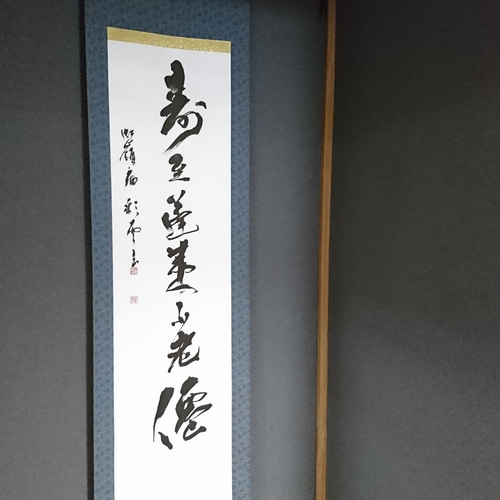 寿至蓬莱不老僊
彩雲書